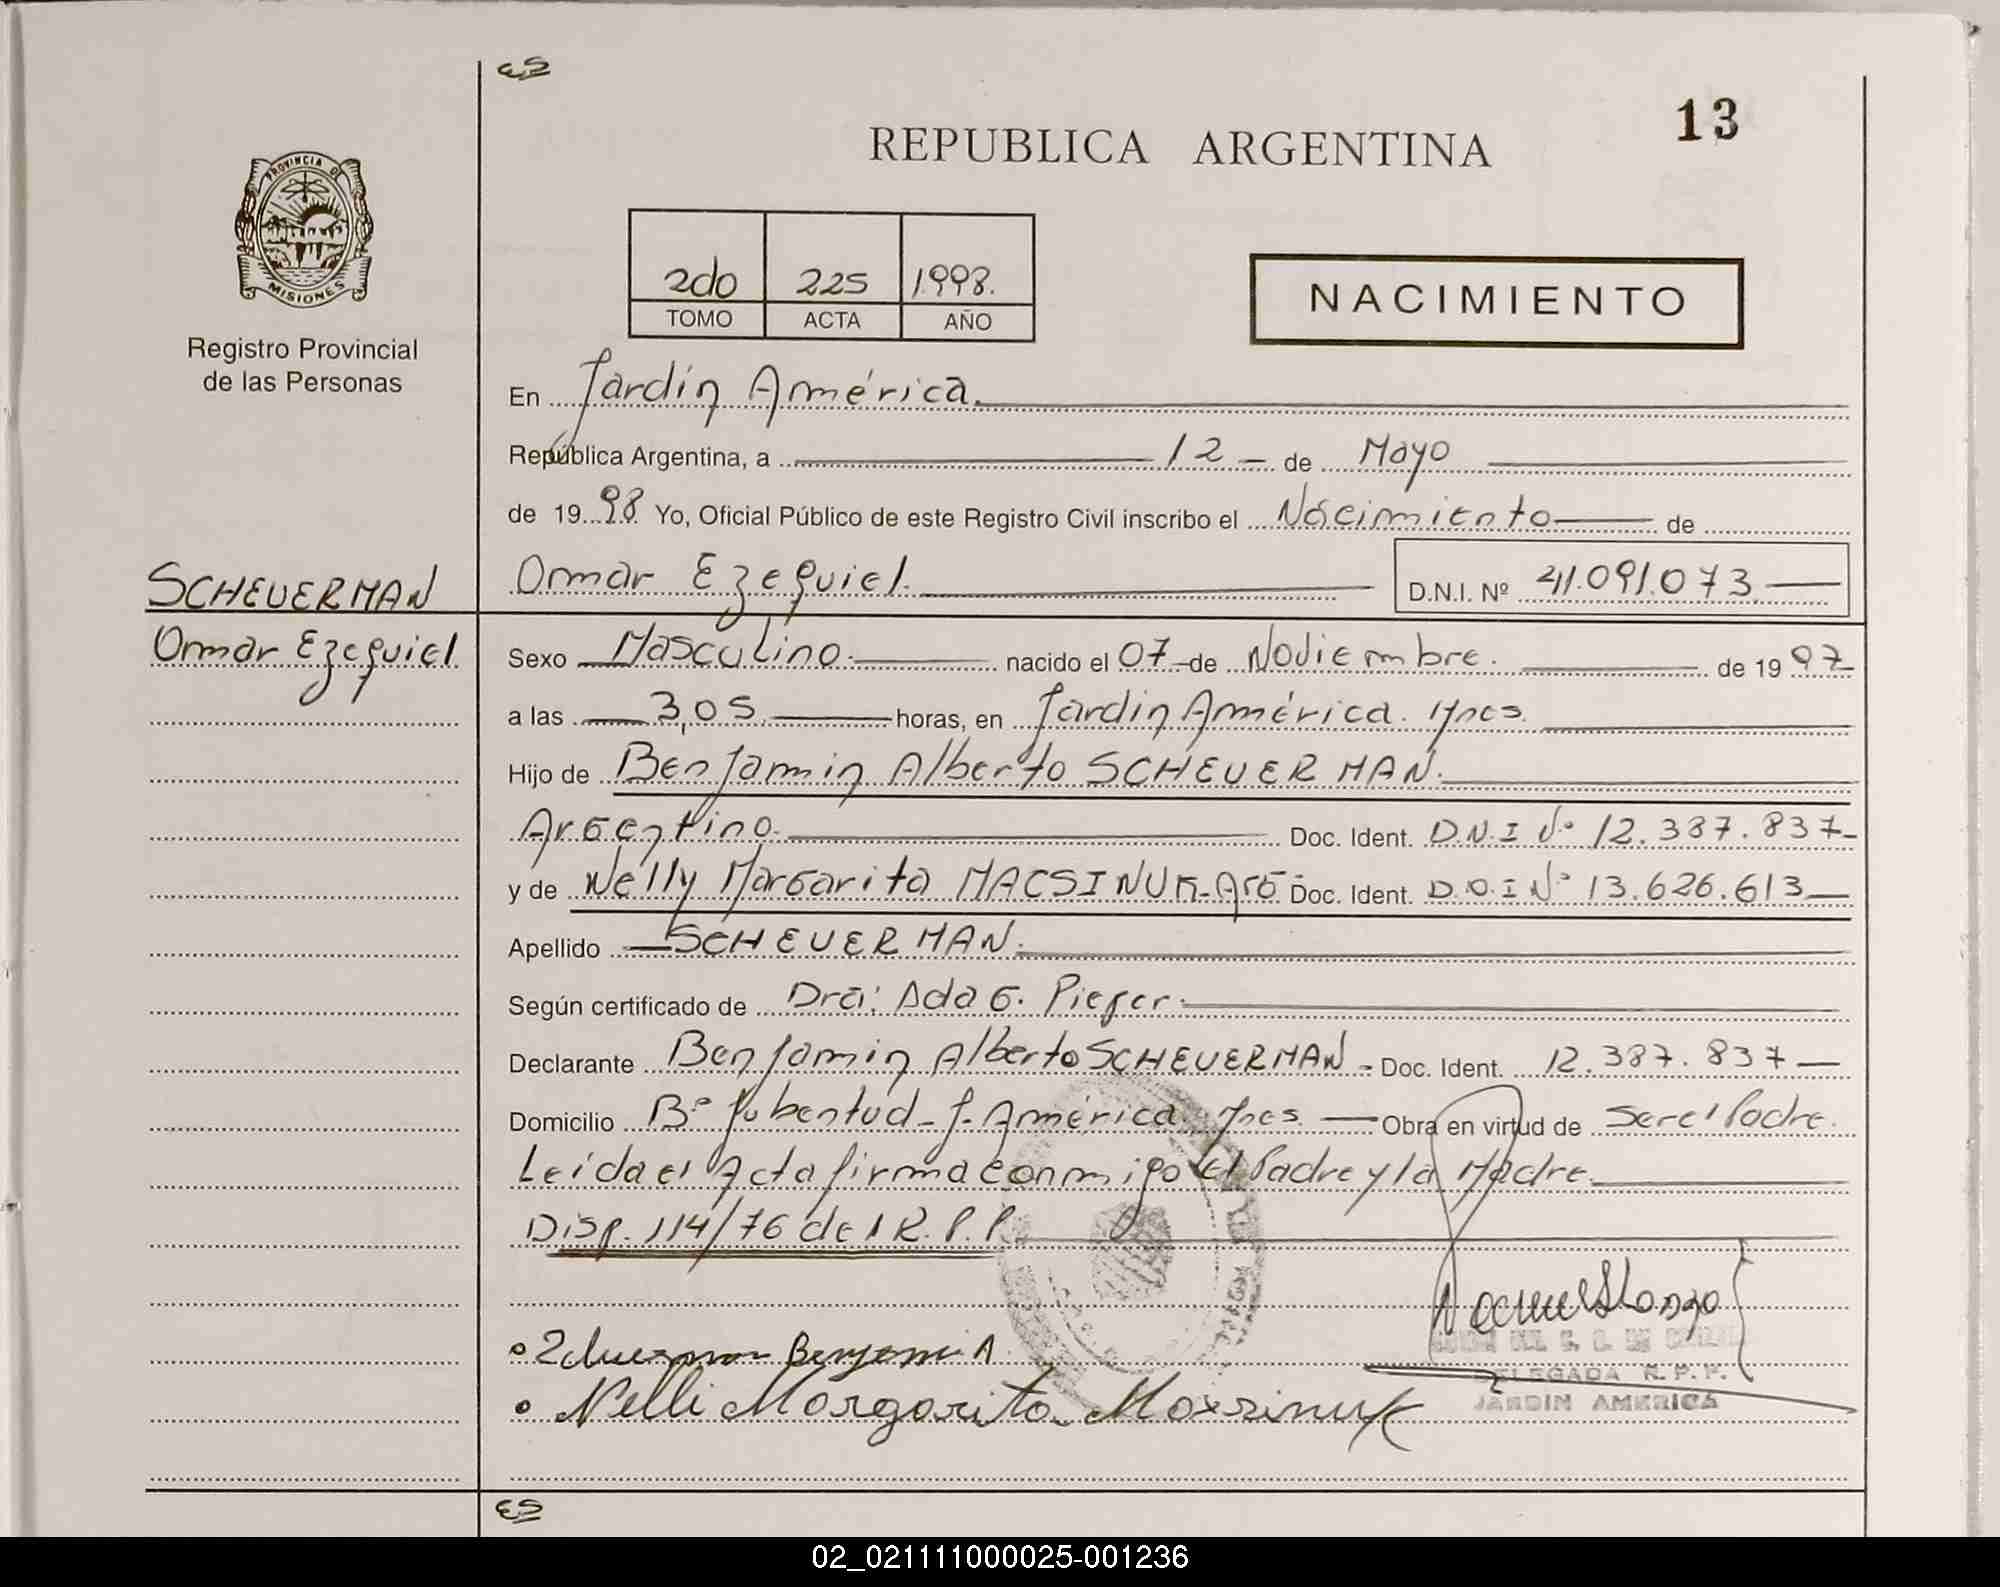 ES
13
REPUBLICA ARGENTINA
PROVINCIA DE
MISIONES
Registro Provincial
de las Personas
2do 225 1998.
TOMO ACTA AÑO
NACIMIENTO
En Jardín América.
República Argentina, a 12 de Mayo
de 1998 Yo, Oficial Público de este Registro Civil inscribo el Nacimiento de
Omar Ezequiel. D.N.I. Nº 41.091.073
SCHEUERMAN
Omar Ezequiel
Sexo Masculino. nacido el 07 de Noviembre. de 1997
a las 3,05 horas, en Jardín América. Mnes.
Hijo de Benjamin Alberto SCHEUERMAN.
Argentino. Doc. Ident. D.N.I Nº 12.387.837
y de Nelly Margarita MACSINUK-Arg- Doc. Ident. D.N.I Nº 13.626.613
Apellido SCHEUERMAN.
Según certificado de Dra: Ada G.
Declarante Benjamin Alberto SCHEUERMAN - Doc. Ident. 12.387.837
Domicilio Bº Jubentud - J. América Mnes. Obra en virtud de Ser el Padre.
Leída el Acta firma conmigo el Padre y la Madre.
Disp. 114/76 del R.P.P.
Benjami A.
Nelli Margarita Maxsinuk
DELEGADA R.P.P.
JARDIN AMERICA
ES
02_021111000025-001236